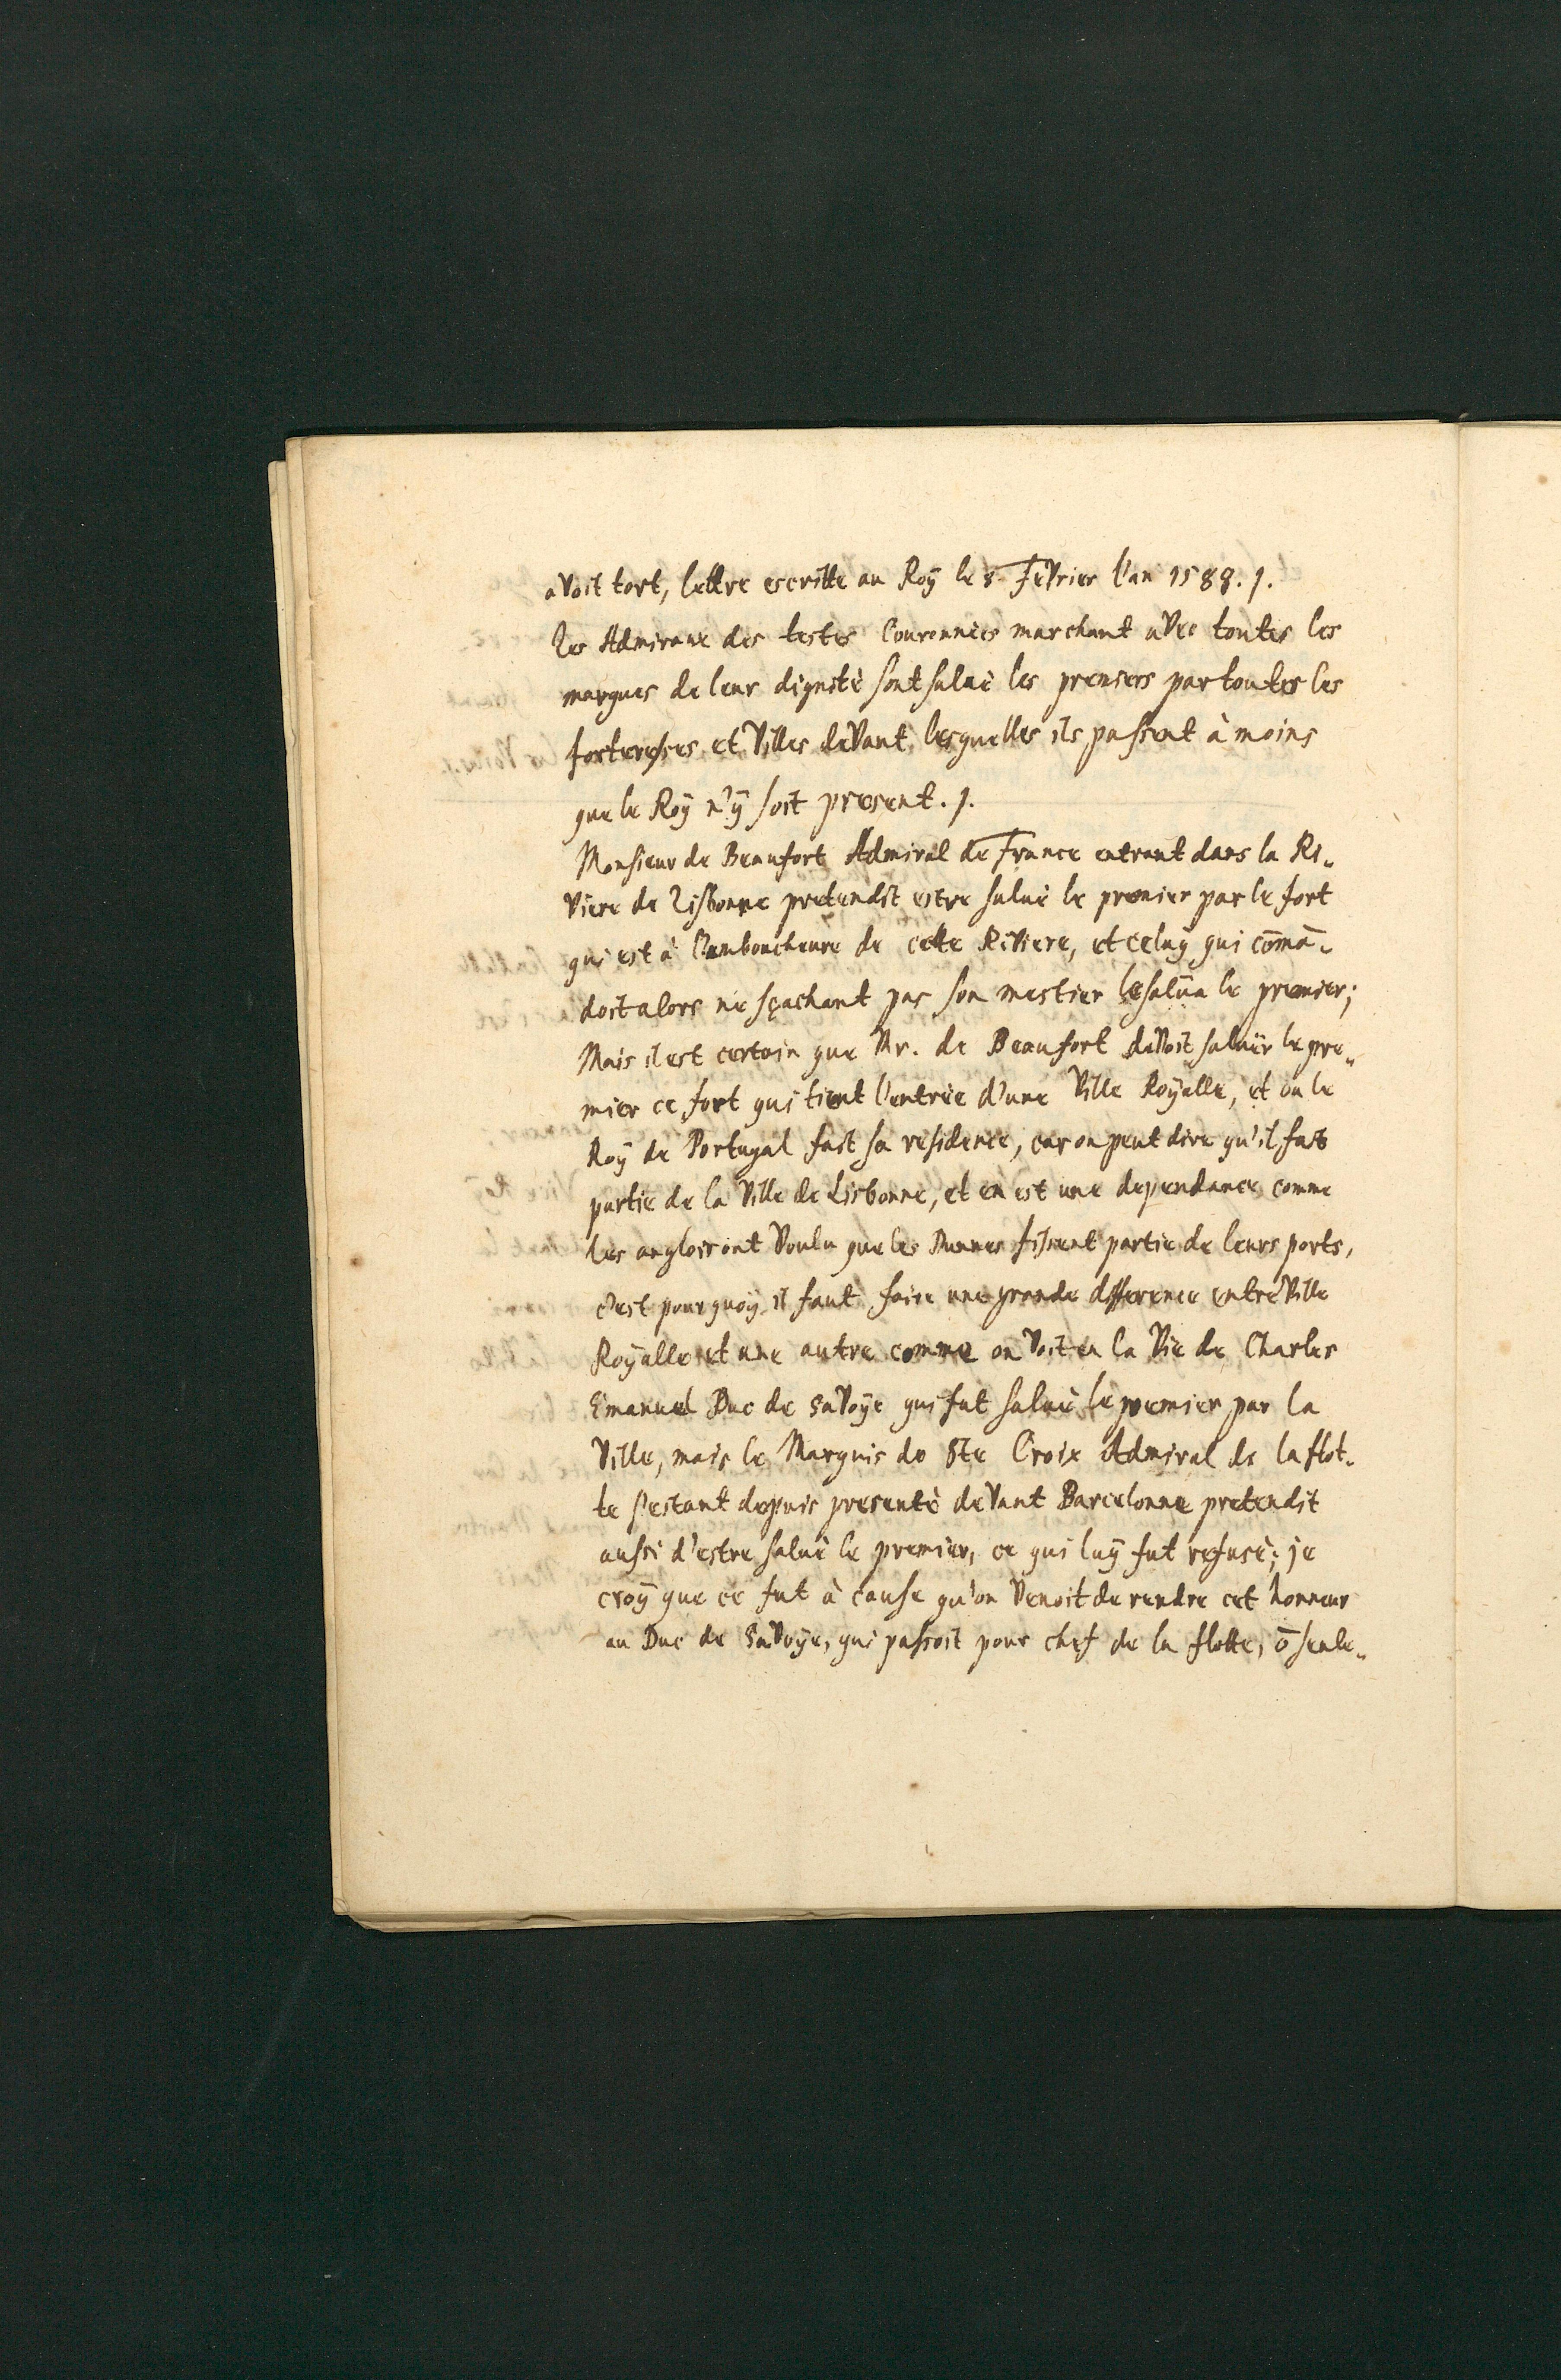 avoit tort, lettre escritte au Roÿ le 8. Fevrier l'an 1588. /.
Les Admiraux des testes Couronnées marchant avec toutes les
marques de leur dignité sont salué les premiers par toutes les
forteresses et Villes devant lesquelles ils passent à moins
que le Roÿ n'ÿ soit present. /.
Monsieur de Beaufort Admiral de France entrant dans la Ri„
viere de Lisbonne pretendit estre salué le premier par le fort
qui est à l'embouchure de cette Riviere, et celuÿ qui com̄ā„
doit alors ne sçachant pas son mestier le salüa le premier;
Mais il est certain que Mr. de Beaufort devoit saluër le pre„
mier ce fort qui tient l'entrée d'une Ville Roÿalle, et ou le
Roÿ de Portugal fait sa residence, car on peut dire qu'il fait
partie de la Ville de Lisbonne, et en est une dependance comme
les anglois ont Voulu que les Dunnes fissent partie de leurs ports,
c'est pourquoÿ il faut faire une grande difference entre Ville
Roÿalle et une autre comme on Voit en la Vie de Charles
Emanuel Duc de Savoÿe qui fut salué le premier par la
Ville, mais le Marquis de Ste Croix Admiral de la flot„
te s'estant depuis presenté devant Barcelonne pretendit
aussi d'estre salué le premier, ce qui luÿ fut refusé; je
croÿ que ce fut à cause qu'on Venoit de rendre cet honneur
au Duc de Savoÿe, qui passoit pour chef de la flotte, ō seule„